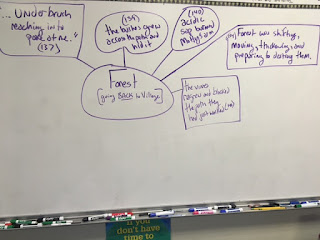 "... Underbrush
reaching in to
(137)
(139)
the bushes grew
across the path and
hid it
(140)
acidic
sap burned
(141) Forest was shifting,
moving, thickening, and
preparing to destroy them.
Forest
[going BACK to Village]
the vines
regrew and blocked
the path they
had just
If you
don't have
time to